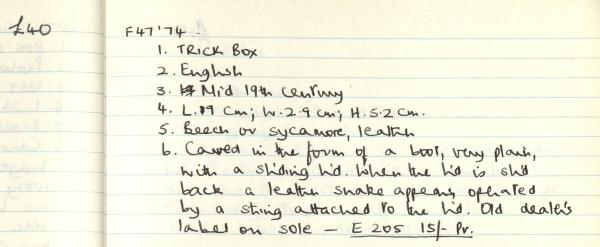 £40
F47'74
1. TRICK BOX
2. English
3. Mid 19th century
4. L.19 cm; W.2.9 cm; H.5.2 cm.
5. Beech or sycamore, leather
6. Carved in the form of a boot, very plain,
with a sliding lid. When the lid is slid
back a leather snake appears, operated
by a string attached to the lid. Old dealer's
label on sole — E 205 15/- Pr.